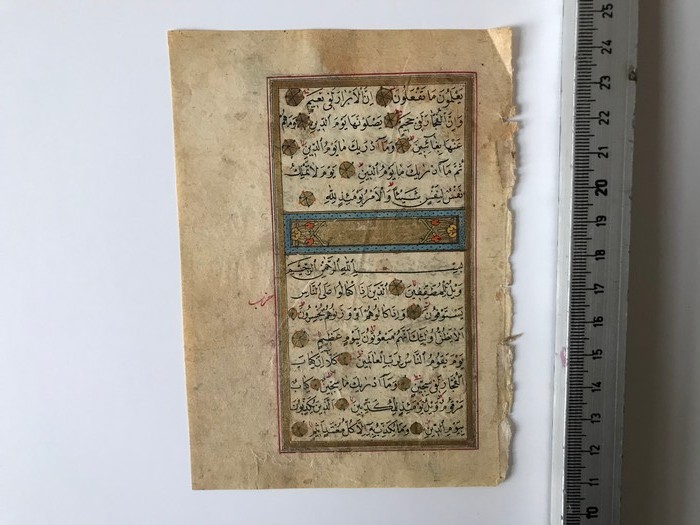 يَعْلَمُونَ مَا تَفْعَلُونَ اِنَّ الْاَبْرَارَ لَفٖى نَعٖيمٍ
وَاِنَّ الْفُجَّارَ لَفٖى جَحٖيمٍ يَصْلَوْنَهَا يَوْمَ الدّٖينِ وَمَا هُمْ
عَنْهَا بِغَائِبٖينَ وَمَا اَدْرٰيكَ مَا يَوْمُ الدّٖينِ
ثُمَّ مَا اَدْرٰيكَ مَا يَوْمُ الدّٖينِ يَوْمَ لَا تَمْلِكُ
نَفْسٌ لِنَفْسٍ شَيْئًا وَالْاَمْرُ يَوْمَئِذٍ لِلّٰهِ
بِسْمِ اللّٰهِ الرَّحْمٰنِ الرَّحٖيمِ
وَيْلٌ لِلْمُطَفِّفٖينَ اَلَّذٖينَ اِذَا اكْتَالُوا عَلَى النَّاسِ
يَسْتَوْفُونَ وَاِذَا كَالُوهُمْ اَوْ وَزَنُوهُمْ يُخْسِرُونَ
اَلَا يَظُنُّ اُولٰئِكَ اَنَّهُمْ مَبْعُوثُونَ لِيَوْمٍ عَظٖيمٍ
يَوْمَ يَقُومُ النَّاسُ لِرَبِّ الْعَالَمٖينَ كَلَّا اِنَّ كِتَابَ
الْفُجَّارِ لَفٖى سِجّٖينٍ وَمَا اَدْرٰيكَ مَا سِجّٖينٌ كِتَابٌ
مَرْقُومٌ وَيْلٌ يَوْمَئِذٍ لِلْمُكَذِّبٖينَ اَلَّذٖينَ يُكَذِّبُونَ
بِيَوْمِ الدّٖينِ وَمَا يُكَذِّبُ بِهٖ اِلَّا كُلُّ مُعْتَدٍ اَثٖيمٍ
25
23
22
21
20
19
18
17
16
15
14
13
12
11
10